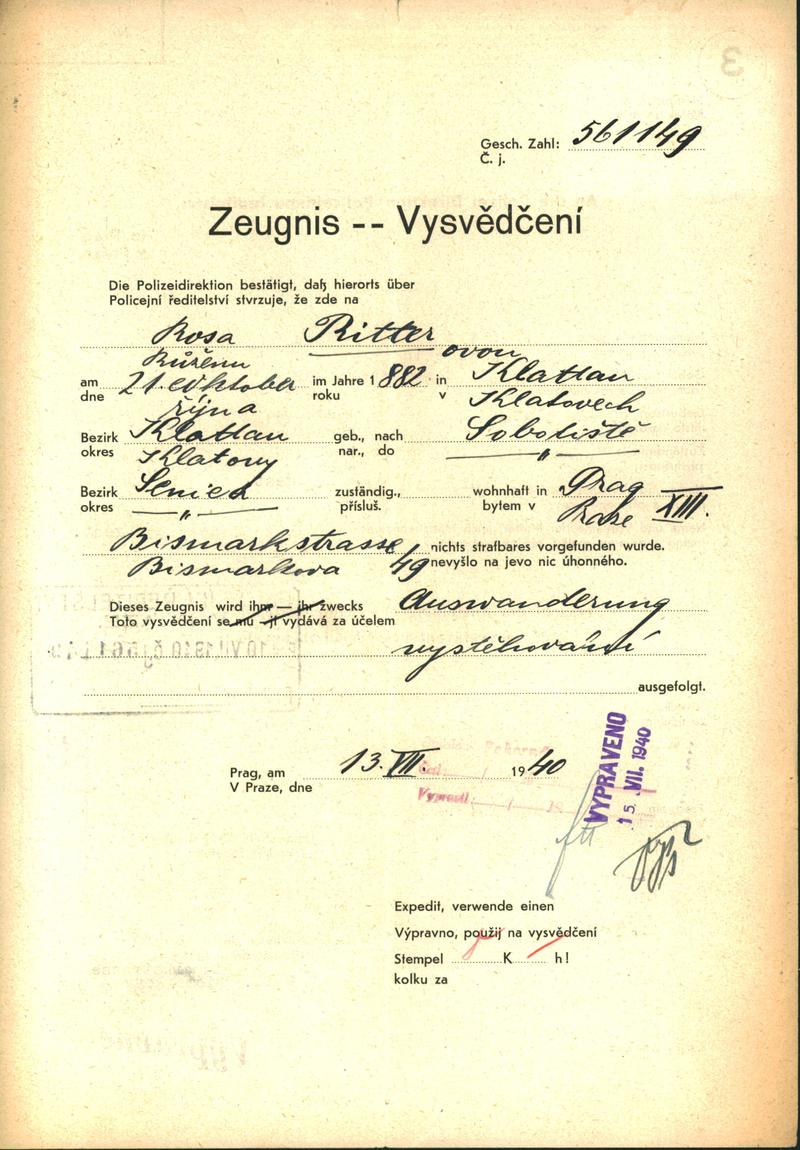 3
Gesch. Zahl: 561149
Č. j.
Zeugnis -- Vysvědčení
Die Polizeidirektion bestätigt, daß hierorts über
Policejní ředitelství stvrzuje, že zde na
Rosa Ritter
Růženu ovou
am 21. Oktober im Jahre 1882 in Klattau
dne října roku v Klatovech
Bezirk Klattau geb., nach Sobotiště
okres Klatovy nar., do "
Bezirk Senica zuständig., wohnhaft in Prag XIII.
okres " přísluš. bytem v Praze
Bismarkstrasse 49 nichts strafbares vorgefunden wurde.
Bismarkova nevyšlo na jevo nic úhonného.
Dieses Zeugnis wird ihm — ihr zwecks Auswanderung
Toto vysvědčení se mu - jí vydává za účelem
vystěhování
ausgefolgt.
Prag, am 13. VII. 1940
V Praze, dne
VYPRAVENO
15. VII. 1940
Expedit, verwende einen
Výpravno, použij na vysvědčení
Stempel K h!
kolku za